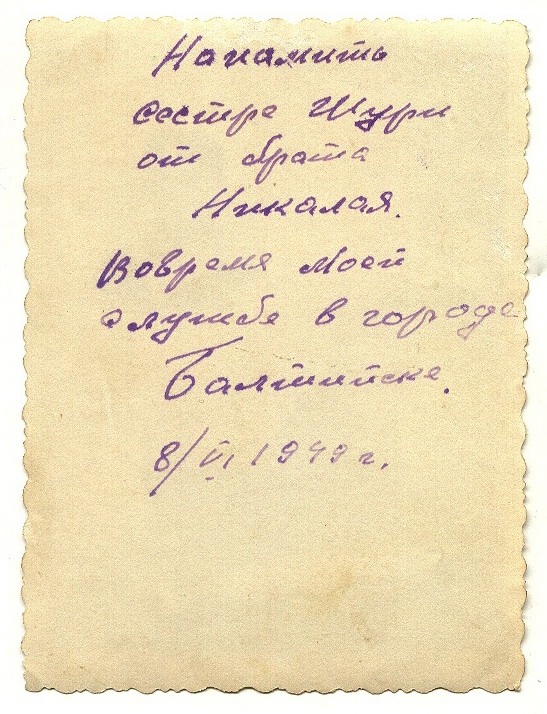 Напамить
сестре Шури
от брата
Николая.
Вовремя моей
службе в городе
Балтийске.
8/VI 1949 г.